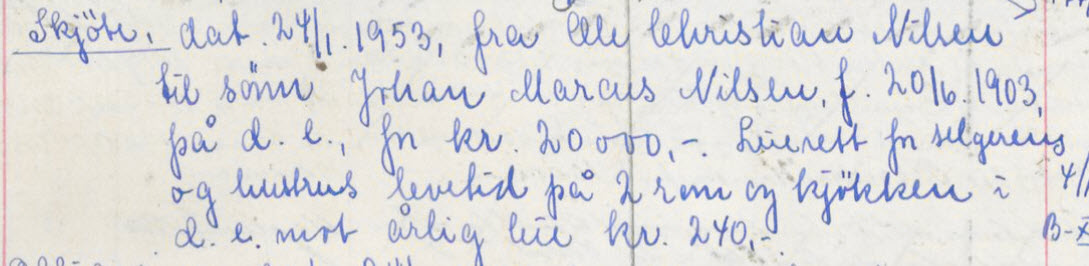 Skjöte, dat. 24/1. 1953, fra Ole Christian Nilsen
til sönn Johan Marcus Nilsen, f. 20/6. 1903,
på d. e., for kr. 20000,-. Leierett for selgerens
og hustrus levetid på 2 rom og kjökken i 4/
d. e. mot årlig leie kr. 240,- B-x